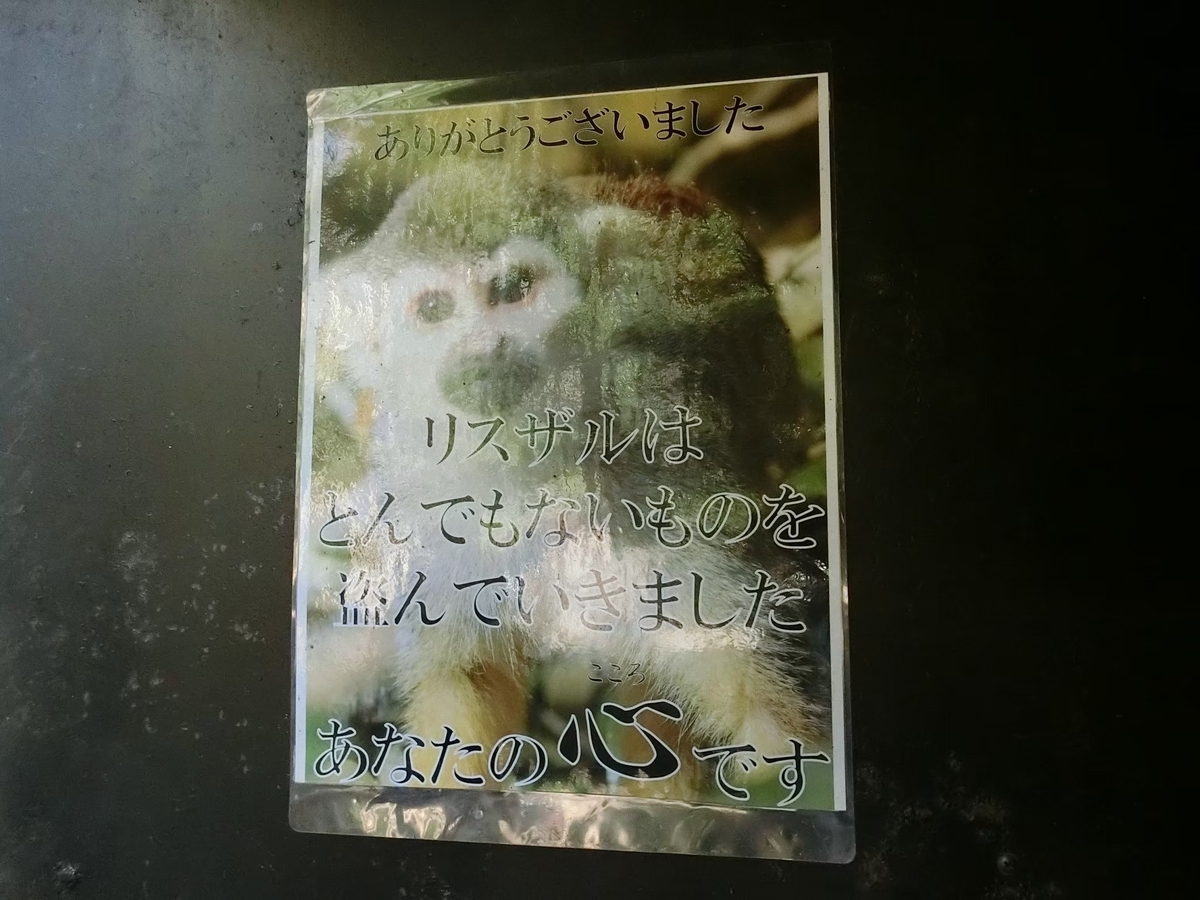 ありがとうございました
リスザルは
とんでもないものを
盗んでいきました
こころ
あなたの心です